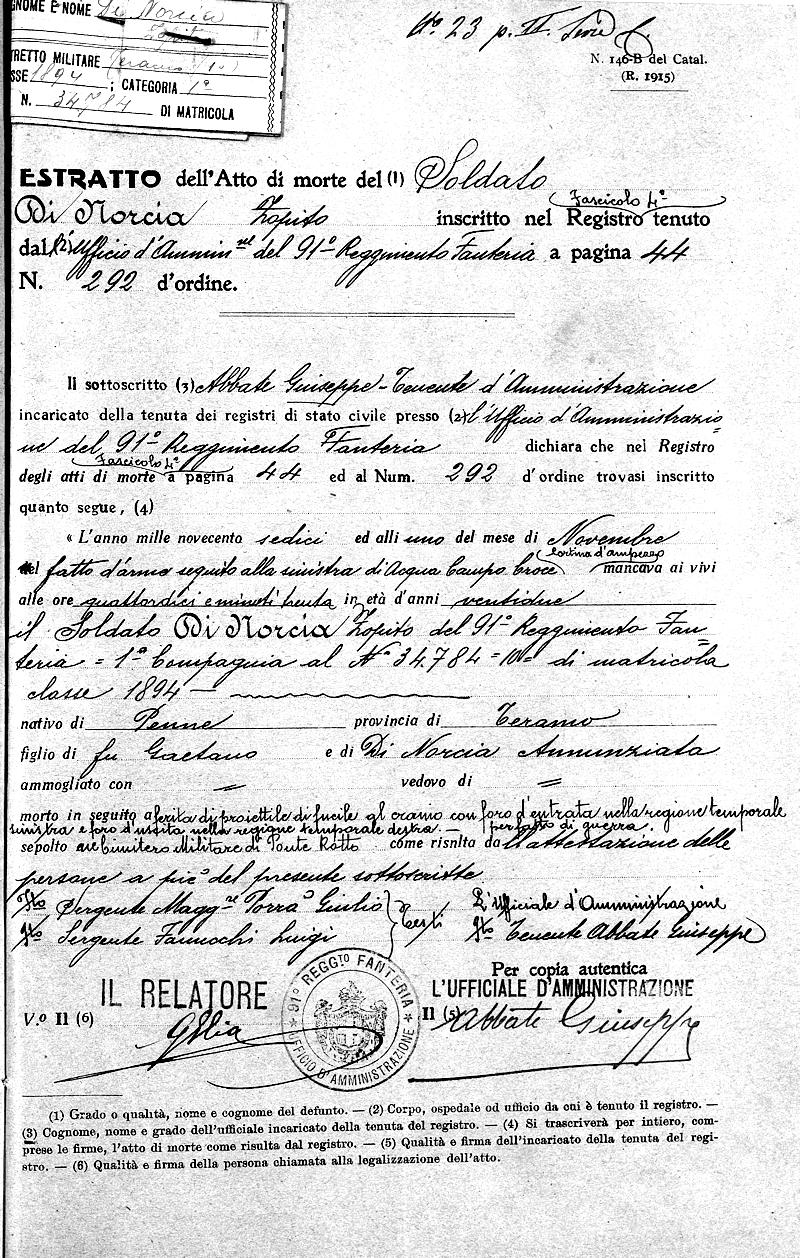 GNOME E NOME Di Norcia
Zopito
RETTO MILITARE Teramo
SSE 1894; CATEGORIA 1ª
N. 34784 DI MATRICOLA
Nº 23 p. II Serie C
N. 146-B del Catal.
(R. 1915)
ESTRATTO dell'Atto di morte del (1) Soldato
Di Norcia Zopito inscritto nel Registro Fascicolo 4º tenuto
dal (2) Ufficio d'Ammin.ne del 91º Reggimento Fanteria a pagina 44
N. 292 d'ordine.
Il sottoscritto (3) Abbate Giuseppe - Tenente d'Amministrazione
incaricato della tenuta dei registri di stato civile presso (2) l'Ufficio d'Amministrazio=
ne del 91º Reggimento Fanteria dichiara che nel Registro
degli atti di morte Fascicolo 4º a pagina 44 ed al Num. 292 d'ordine trovasi inscritto
quanto segue, (4)
« L'anno mille novecento sedici ed alli uno del mese di Novembre
nel fatto d'arme seguito alla sinistra di Acqua Campo Croce (Cortina d'Ampezzo) mancava ai vivi
alle ore quattordici e minuti trenta in età d'anni ventidue
il Soldato Di Norcia Zopito del 91º Reggimento Fan=
teria = 1ª Compagnia al Nº 34784 =10= di matricola
classe 1894 —
nativo di Penne provincia di Teramo
figlio di fu Gaetano e di Di Norcia Annunziata
ammogliato con = vedovo di =
morto in seguito a ferita di proiettile di fucile al cranio con foro d'entrata nella regione temporale
sinistra e foro d'uscita nella regione temporale destra. — per fatto di guerra.
sepolto nel Cimitero Militare di Ponte Rotto come risulta da ll'attestazione delle
persone a piè del presente sottoscritte
Fto Sergente Magg.re Porrà Giulio } Testi L'Ufficiale d'Amministrazione
Fto Sergente Fannochi Luigi Fto Tenente Abbate Giuseppe
Per copia autentica
IL RELATORE L'UFFICIALE D'AMMINISTRAZIONE
V.º Il (6) Il (5) Abbate Giuseppe
91º REGG.TO FANTERIA
UFFICIO D'AMMINISTRAZIONE
(1) Grado o qualità, nome e cognome del defunto. — (2) Corpo, ospedale od ufficio da cui è tenuto il registro. —
(3) Cognome, nome e grado dell'ufficiale incaricato della tenuta del registro. — (4) Si trascriverà per intiero, com-
prese le firme, l'atto di morte come risulta dal registro. — (5) Qualità e firma dell'incaricato della tenuta del regi-
stro. — (6) Qualità e firma della persona chiamata alla legalizzazione dell'atto.